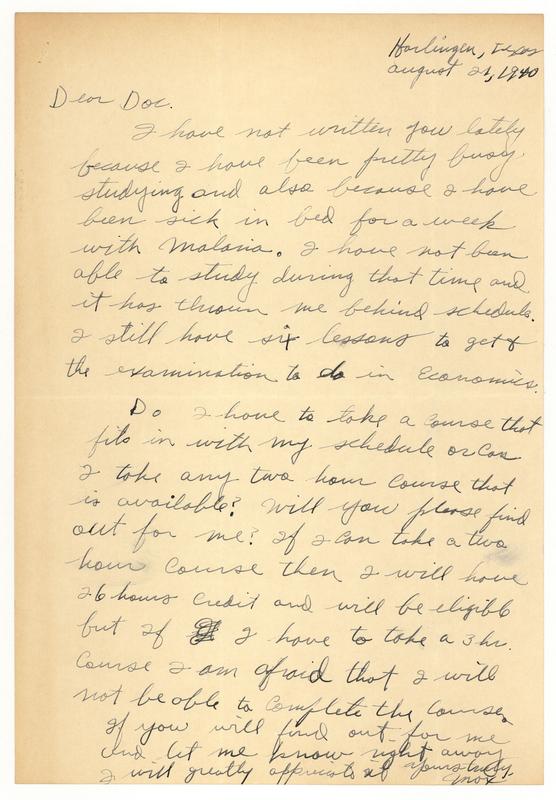 Harlingen, Texas
August 21, 1940
Dear Doc.
I have not written you lately
because I have been pretty busy
studying and also because I have
been sick in bed for a week
with Malaria. I have not been
able to study during that time and
it has thrown me behind schedule.
I still have six lessons to get &
the examination to do in Economics.
Do I have to take a course that
fits in with my schedule or can
I take any two hour course that
is available? Will you please find
out for me? If I can take a two
hour course then I will have
26 hours credit and will be eligible
but if I have to take a 3 hr.
course I am afraid that I will
not be able to complete the course.
If you will find out for me
and let me know right away
I will greatly appreciate it Yours truly,